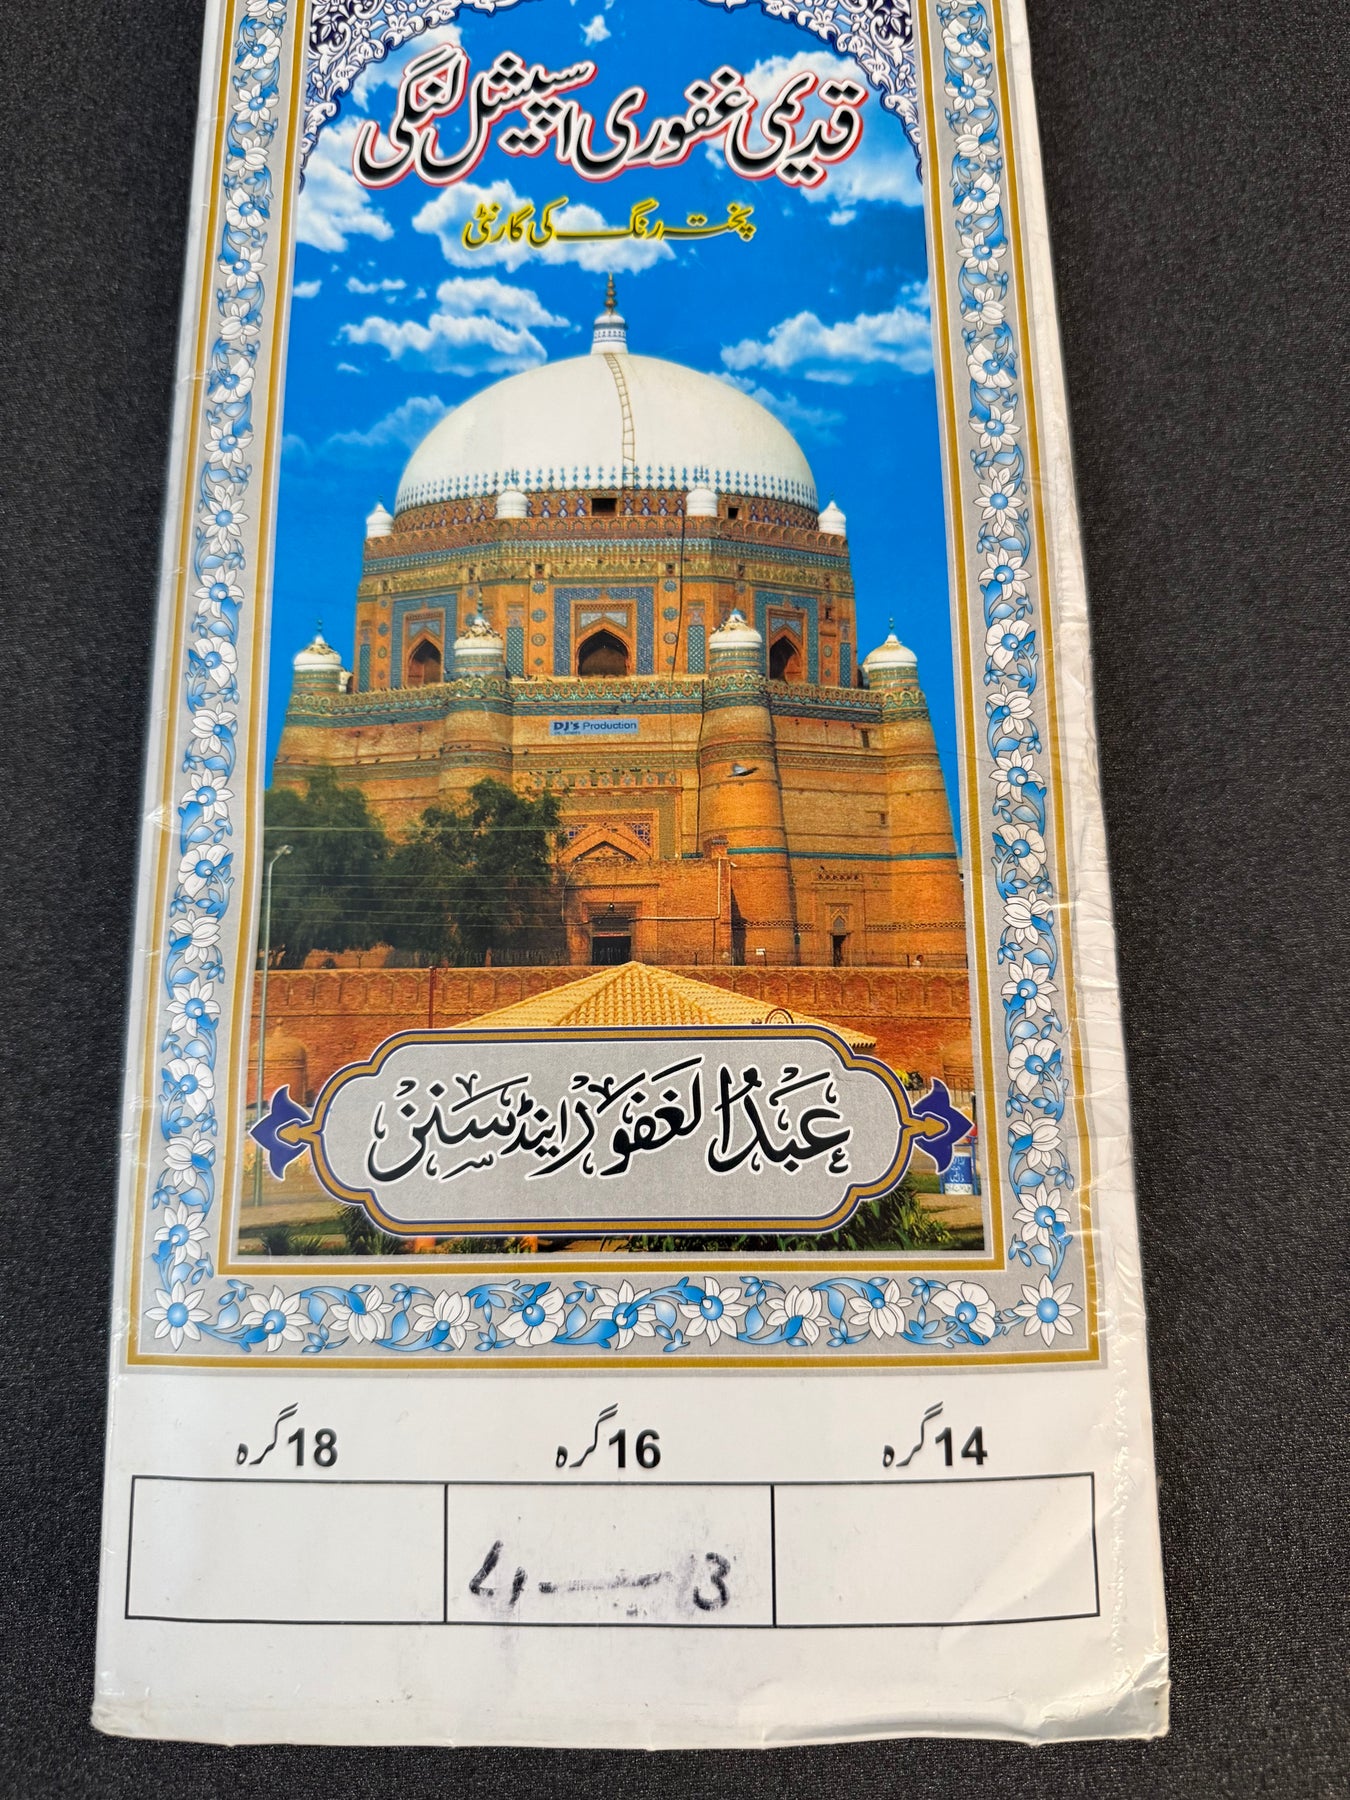 قدیمی غفوری اسپیشل لنگی
پختہ رنگ کی گارنٹی
DJ's Production
عبدالغفور اینڈ سنز
14 گرہ 16 گرہ 18 گرہ
4 — 13